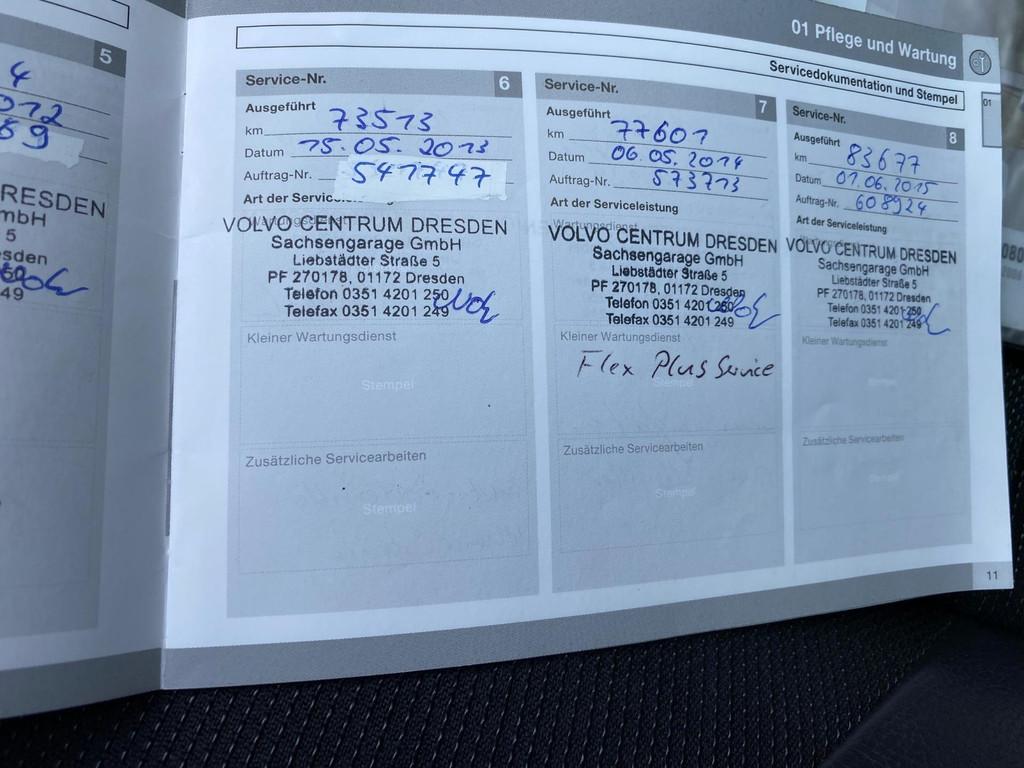 5
4
012
59
RESDEN
mbH
5
sden
49
01 Pflege und Wartung
Servicedokumentation und Stempel
01
Service-Nr. 6
Ausgeführt
km 73513
Datum 15.05.2013
Auftrag-Nr. 541747
Art der Serviceleistung
VOLVO CENTRUM DRESDEN
Sachsengarage GmbH
Liebstädter Straße 5
PF 270178, 01172 Dresden
Telefon 0351 4201 250
Telefax 0351 4201 249
Kleiner Wartungsdienst
Stempel
Zusätzliche Servicearbeiten
Stempel
Service-Nr. 7
Ausgeführt
km 77601
Datum 06.05.2014
Auftrag-Nr. 573713
Art der Serviceleistung
Wartungsdienst
VOLVO CENTRUM DRESDEN
Sachsengarage GmbH
Liebstädter Straße 5
PF 270178, 01172 Dresden
Telefon 0351 4201 250
Telefax 0351 4201 249
Kleiner Wartungsdienst
Flex Plus Service
Zusätzliche Servicearbeiten
Stempel
Service-Nr. 8
Ausgeführt
km 83677
Datum 01.06.2015
Auftrag-Nr. 608924
Art der Serviceleistung
VOLVO CENTRUM DRESDEN
Sachsengarage GmbH
Liebstädter Straße 5
PF 270178, 01172 Dresden
Telefon 0351 4201 250
Telefax 0351 4201 249
Kleiner Wartungsdienst
Zusätzliche Servicearbeiten
Stempel
11